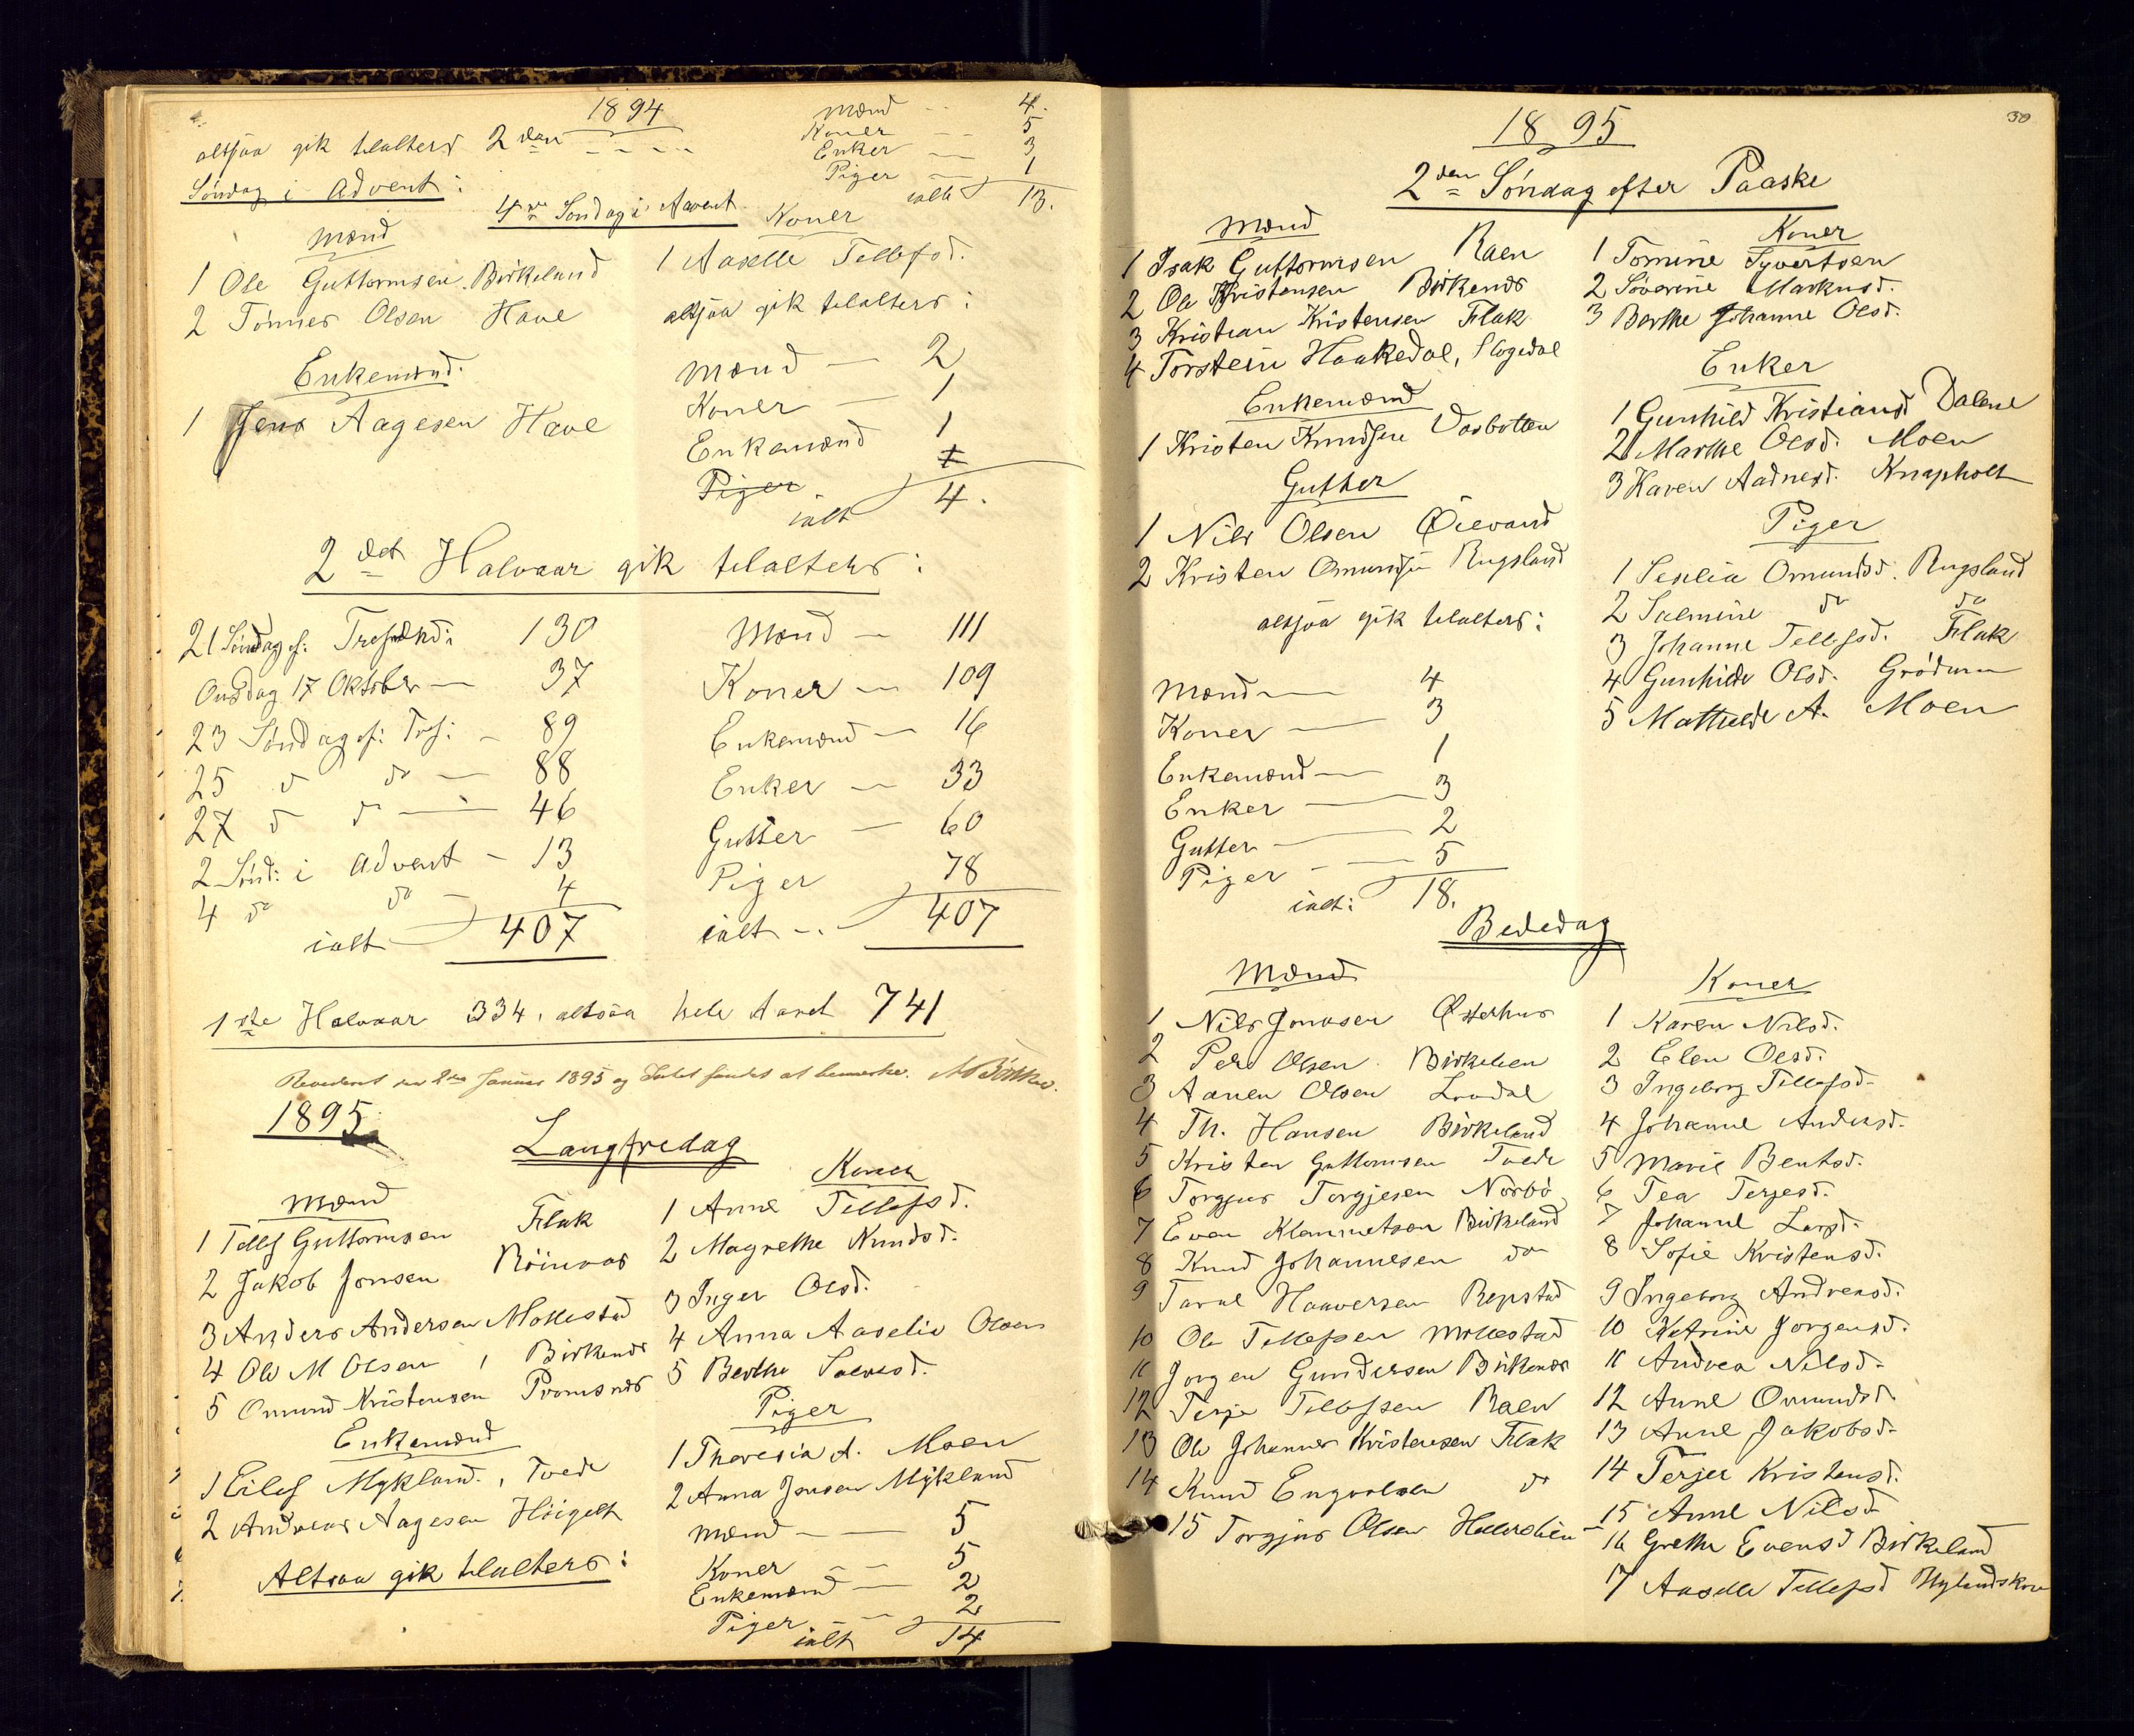 1894
altsaa gik tilalters 2den
Søndag i Advent:
Mænd 4.
Koner 5
Enker 3
Piger 1
ialt 13.
4de Søndag i Advent
Mænd
1 Ole Guttormsen Birkeland
2 Tønnes Olsen Have
Enkemænd.
1 Jens Aagesen Have
Koner
1 Aaselle Tellefsd.
altsaa gik tilalters:
Mænd — 2
Koner — 1
Enkemænd 1
Piger 1
ialt 4.
2det Halvaar gik tilalters:
21 Søndag ef: Trefoldh: 130
Onsdag 17 Oktober — 37
23 Søndag ef: Tref: — 89
25 do do — 88
27 do do — 46
2 Sønd: i Advent — 13
4 do do — 4
ialt 407
Mænd — 111
Koner — 109
Enkemænd — 16
Enker — 33
Gutter — 60
Piger 78
ialt — 407
1ste Halvaar 334, altsaa hele Aaret 741
Revideret den 2den Januar 1895 og Intet fundet at bemærke.
1895
Langfredag
Mænd
1 Tellef Guttormsen Flak
2 Jakob Jonsen
3 Anders Andersen Mollestad
4 Ole M Olsen, Birkenes
5 Omund Kristensen
Enkemænd
1 Eilef Mykland, Tvede
2 Andreas Aagesen
Altsaa gik tilalters:
Koner
1 Anne Tellefsd.
2 Magrethe Knudsd.
3 Inger Olsd.
4 Anna Aaselie Olsen
5 Berthe
Piger
1 Theresia A. Moen
2 Anna Jonsen Mykland
Mænd — 5
Koner — 5
Enkemænd — 2
Piger — 2
ialt 14
30
1895
2den Søndag efter Paaske
Mænd
1 Isak Guttormsen Raen
2 Ole Kristensen Birkenes
3 Kristian Kristensen Flak
4 Torstein Haakedal,
Enkemænd
1 Kristen Knudsen Vasbotten
Gutter
1 Nils Olsen Øievand
2 Kristen Omundsen Rugsland
altsaa gik tilalters:
Mænd — 4
Koner — 3
Enkemænd — 1
Enker — 3
Gutter — 2
Piger — 5
ialt: 18.
Koner
1 Tomine Syvertsen
2 Søverine Markusd.
3 Berthe Johanne Olsd.
Enker
1 Gunhild Kristiansd Dalene
2 Marthe Olsd. Moen
3 Karen Aadnesd. Knapholt
Piger
1 Omundsd. Rugsland
2 Salmine do do
3 Johanne Tellefsd. Flak
4 Gunhilde Olsd. Grødum
5 Mathilde A. Moen
Bededag
Mænd
1 Nils Jonasen Østerhus
2 Peder Olsen Birkelien
3 Aanen Olsen
4 Th. Hansen Birkeland
5 Kristen Guttormsen Tvede
6 Torgjus Torgjesen Norbø
7 Even Klemmetsen Birkeland
8 Knud Johannesen do
9 Taral Haaversen Repstad
10 Ole Tellefsen Mollestad
11 Jørgen Gundersen Birkenes
12 Terje Tellefsen Raen
13 Ole Johannes Kristensen Flak
14 Knud Engvalsen do
15 Torgjus Olsen
Koner
1 Karen Nilsd.
2 Elen Olsd.
3 Ingeborg Tellefsd.
4 Johanne Andersd.
5 Marie Bentsd.
6 Tea Terjesd.
7 Johanne Larsd.
8 Sofie Kristensd.
9 Ingeborg Andreasd.
10 Katrine Jørgensd.
11 Andrea Nilsd.
12 Anne Omundsd.
13 Anne Jakobsd.
14 Terjer Kristensd.
15 Anne Nilsd
16 Grethe Evensd Birkeland
17 Aaselle Tellefsd